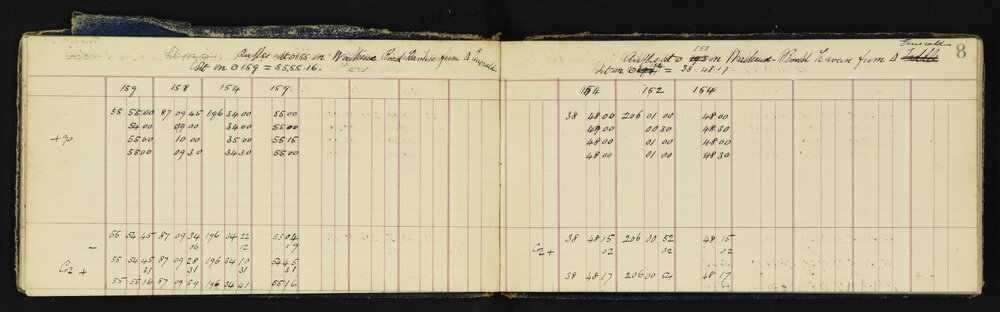 Angles at 0155 in Road Traverse from Δ Emerald
Set on 0159 = 55.55.16.
159 158 154 159
55 55 00 87 09 45 196 34 00 55 00
54 00 09 00 34 00 55 00
+90 55 00 10 00 35 00 55 15
55 00 09 30 34 30 55 00
55 54 45 87 09 34 196 34 22 55 04
- 06 12 19
55 54 45 87 09 28 196 34 10 54 45
C2 + 31 31 31 31
55 55 16 87 09 59 196 34 41 55 16
8
Emerald
153
Angles at 0 in Road Traverse from Δ
Set on 0 154 = 38.48.17
154 152 154
38 48 00 206 01 00 48 00
49 00 00 30 48 30
48 00 01 00 48 00
48 00 01 00 48 30
38 48 15 206 00 52 48 15
C2 + 02 02 02
38 48 17 206 00 54 48 17